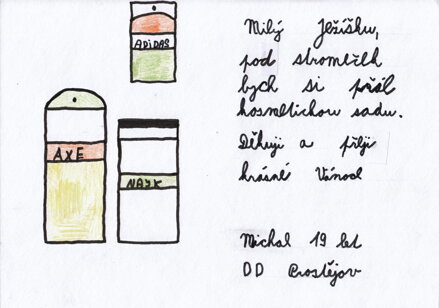 ADIDAS
AXE
NAJK
Milý Ježíšku,
pod stromeček
bych si přál
kosmetickou sadu.
Děkuji a přeji
krásné Vánoce
Michal 19 let
DD Prostějov